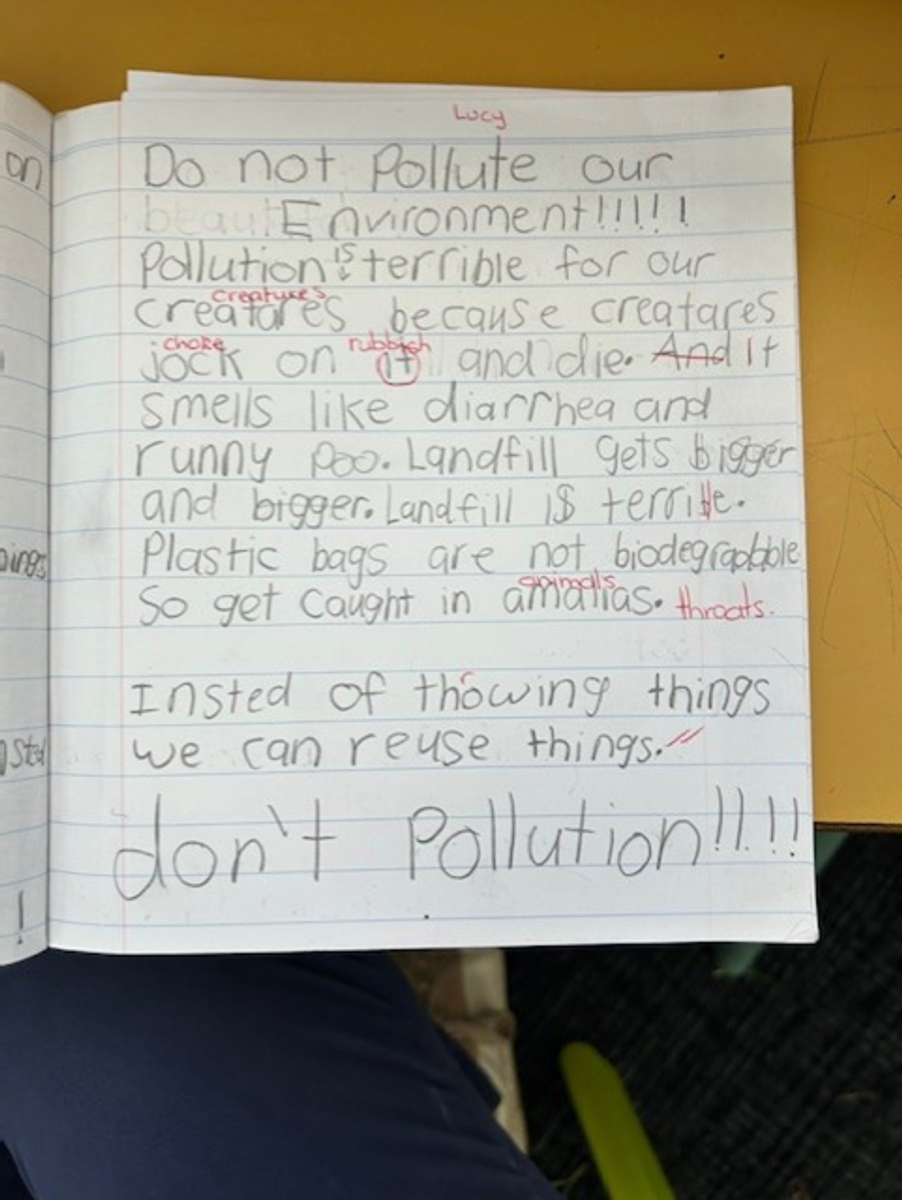 Lucy
on
Do not Pollute our
beaut Environment!!!!!
Pollution is terrible for our
creatures
creatares because creatares
choke rubbish
jock on it and die. And It
smells like diarrhea and
runny poo. Landfill gets bigger
and bigger. Landfill is terrible.
Plastic bags are not biodegradable
animals
So get caught in amalias. throats.
Insted of throwing things
we can reuse things.
don't Pollution!!!!